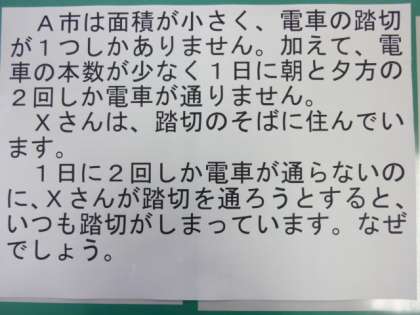 A市は面積が小さく、電車の踏切
が１つしかありません。加えて、電
車の本数が少なく１日に朝と夕方の
２回しか電車が通りません。
Xさんは、踏切のそばに住んでい
ます。
１日に２回しか電車が通らないの
に、Xさんが踏切を通ろうとすると、
いつも踏切がしまっています。なぜ
でしょう。